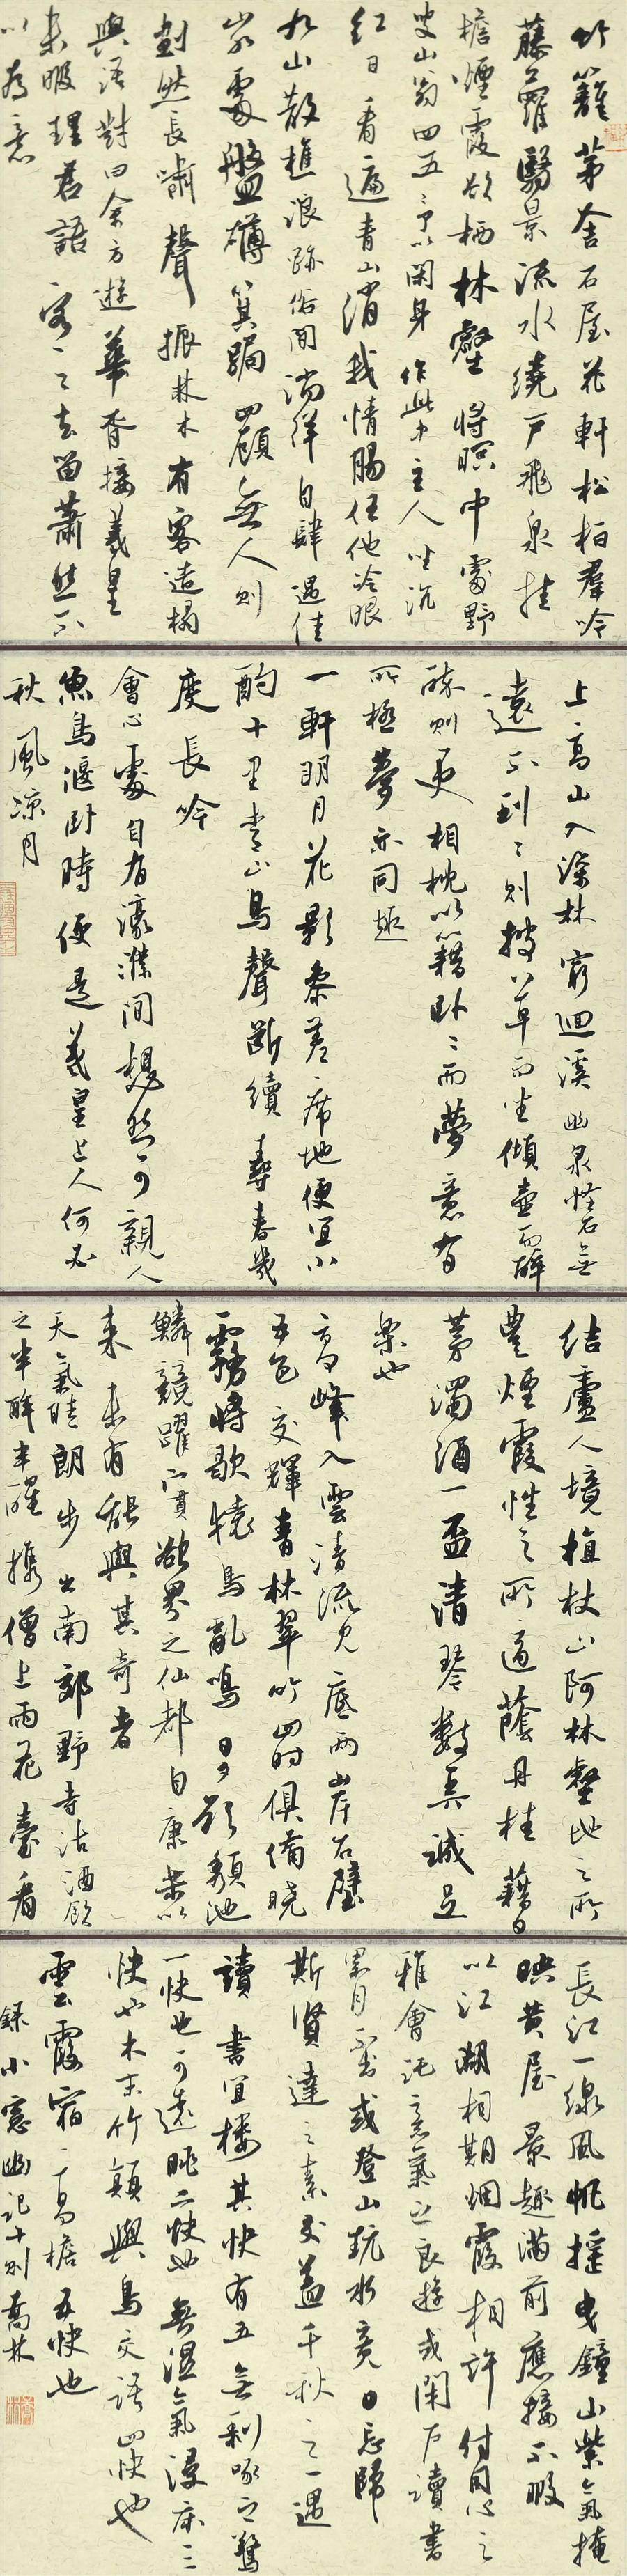 竹籬茅舍石屋花軒松柏群吟
藤蘿翳景流水繞戶飛泉挂
檐煙霞欲栖林壑將暝中處野
叟山翁四五予以閑身作此中主人坐沉
紅日看遍青山消我情腸任他冷眼
九山散樵浪跡俗間徜徉自肆遇佳
山水處盤礴箕踞四顧無人則
劃然長嘯聲振林木有客造榻
與語對曰余方遊華胥接羲皇
未暇理君語客之去留蕭然不
以為意
上高山入深林窮迴溪幽泉怪石無
遠不到到則披草而坐傾壺而醉
醉則更相枕以藉臥臥而夢意有
所極夢亦同趣
一軒明月花影參差席地便宜小
酌十里青山鳥聲斷續尋春幾
度長吟
會心處自有濠濮間想然可親人
魚鳥偃臥時便是羲皇上人何必
秋風涼月
結廬人境植杖山阿林壑地之所
豐煙霞性之所適蔭丹桂藉白
茅濁酒一盃清琴數弄誠足
樂也
高峰入雲清流見底兩岸石壁
五色交輝青林翠竹四時俱備曉
霧將歇猿鳥亂鳴日夕欲頹池
鱗競躍實欲界之仙都自康樂以
來未有能與其奇者
天氣晴朗步出南郊野寺沽酒飲
之半醉半醒攜僧上雨花臺看
長江一線風帆搖曳鐘山紫氣掩
映黃屋景趣滿前應接不暇
以江湖相期煙霞相許付同心之
雅會託意氣之良遊或閉戶讀書
累月不出或登山玩水竟日忘歸
斯賢達之素交蓋千秋之一遇
讀書宜樓其快有五無剝啄之驚
一快也可遠眺二快也無濕氣浸床三
快也木末竹顛與鳥交語四快也
雲霞宿高檐五快也
錄小窗幽記十則喬林